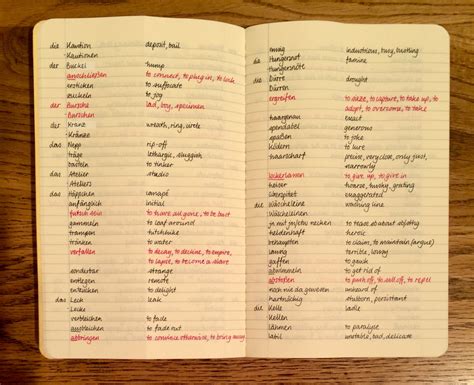 die Kaution deposit, bail
Kautionen
der Buckel hump
anschließen to connect, to plug in, to lock
ersticken to suffocate
zuckeln to jog
der Bursche lad, boy, specimen
Burschen
der Kranz wreath, ring, circle
Kränze
das Nepp rip-off
träge lethargic, sluggish
basteln to tinker
das Atelier studio
Ateliers
das Häppchen canapé
anfänglich initial
to have anyone, to be bust
gammeln to loaf around
trampen hitchhike
tränken to water
verfallen to decay, to decline, to expire,
to lapse, to become a slave
sonderbar strange
entfernen to remove
entzücken to delight
das Leck leak
Lecke
verbleichen to fade
ausbleichen to fade out
abbringen to convince otherwise, to bring away
emsig industrious, busy, bustling
die Hungersnot famine
Hungersnöte
die Dürre drought
Dürren
ergreifen to seize, to capture, to take up, to
adopt, to overcome, to take
haargenau exact
spendabel generous
spaßen to joke
ködern to lure
haarscharf precise, very close, only just,
narrowly
to give up, to give in
heiser hoarse, husky, grating
überspitzt exaggerated
die Wäscheleine
Wäscheleinen
ja mit jm/etw necken to tease about sth
heldenhaft heroic
behaupten to claim, to maintain (argue)
launig humorous
gaffen to gawk
abwimmeln to get rid of
abstoßen to push off, to sell off, to repel
noch nie da gewesen unheard of
hartnäckig stubborn, persistent
die Kelle ladle
Kellen
lähmen to paralyse
labil unstable, bad, delicate